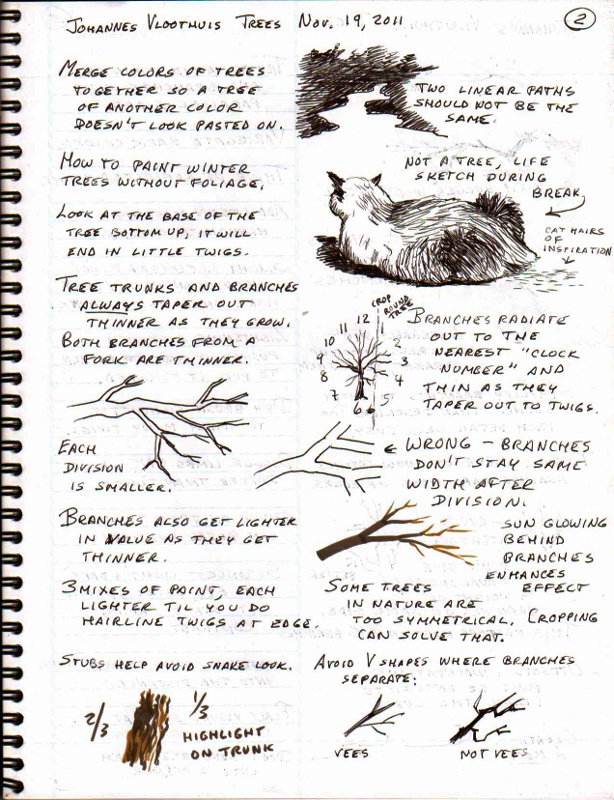 Johannes Vloothuis Trees Nov. 19, 2011
2
Merge colors of trees
together so a tree
of another color
doesn't look pasted on.
Two linear paths
should not be the
same.
How to paint winter
trees without foliage.
Not a tree, life
sketch during
break.
Look at the base of the
tree bottom up, it will
end in little twigs.
Cat hairs
of
inspiration
Tree trunks and branches
always taper out
thinner as they grow.
Both branches from a
fork are thinner.
Crop
round
tree
12
11
1
10
2
9
3
8
4
7
5
6
Branches radiate
out to the
nearest "clock
number" and
thin as they
taper out to twigs.
Each
division
is smaller.
Wrong – branches
don't stay same
width after
division.
Branches also get lighter
in value as they get
thinner.
Sun glowing
behind
branches
enhances
effect
3 mixes of paint, each
lighter til you do
hairline twigs at edge.
Some trees
in nature are
too symmetrical. Cropping
can solve that.
Stubs help avoid snake look.
Avoid V shapes where branches
separate:
2/3
1/3
highlight
on trunk
Vees
Not vees